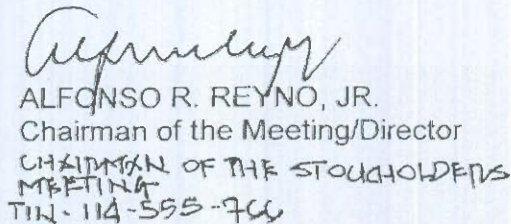 ALFONSO R. REYNO, JR.
Chairman of the Meeting/Director
CHAIRMAN OF THE STOCKHOLDERS
MEETING
TIN - 114-555-766